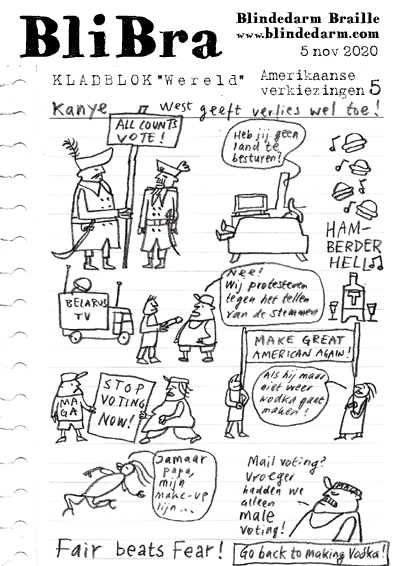 BliBra
Blindedarm Braille
www.blindedarm.com
5 nov 2020
KLADBLOK "Wereld"
Amerikaanse
verkiezingen 5
Kanye West geeft verlies wel toe!
ALL COUNTS
VOTE!
Heb jij geen
land te
besturen?
HAM-
BERDER
HELL
BELARUS
TV
Nee!
Wij protesteren
tegen het tellen
van de stemmen
MAKE GREAT
AMERICAN AGAIN!
Als hij maar
niet weer
wodka gaat
maken!
MA
GA
STOP
VOTING
NOW!
Jamaar
papa,
mijn
make-up
lijn...
Mail voting?
Vroeger
hadden we
alleen
male
voting!
Fair beats Fear!
Go back to making Vodka!